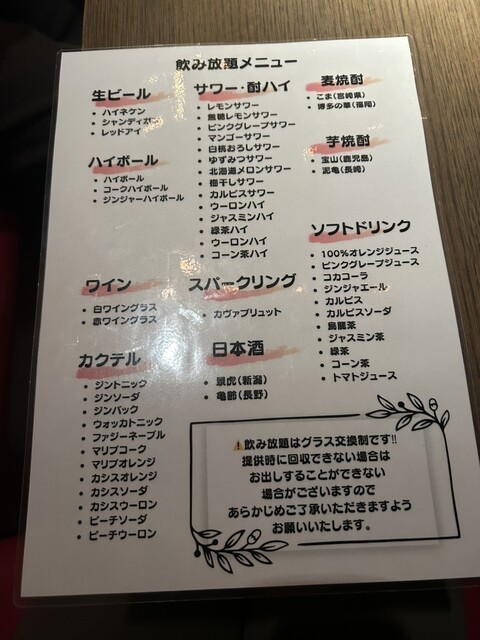 飲み放題メニュー
生ビール
・ハイネケン
・シャンディガフ
・レッドアイ
ハイボール
・ハイボール
・コークハイボール
・ジンジャーハイボール
ワイン
・白ワイングラス
・赤ワイングラス
カクテル
・ジントニック
・ジンソーダ
・ジンバック
・ウォッカトニック
・ファジーネーブル
・マリブコーク
・マリブオレンジ
・カシスオレンジ
・カシスソーダ
・カシスウーロン
・ピーチソーダ
・ピーチウーロン
サワー・酎ハイ
・レモンサワー
・無糖レモンサワー
・ピンクグレープサワー
・マンゴーサワー
・白桃おろしサワー
・ゆずみつサワー
・北海道メロンサワー
・梅干しサワー
・カルピスサワー
・ウーロンハイ
・ジャスミンハイ
・緑茶ハイ
・ウーロンハイ
・コーン茶ハイ
スパークリング
・カヴァブリュット
日本酒
・景虎(新潟)
・亀齢(長野)
麦焼酎
・こま(宮崎県)
・博多の華(福岡)
芋焼酎
・宝山(鹿児島)
・泥亀(長崎)
ソフトドリンク
・100%オレンジジュース
・ピンクグレープジュース
・コカコーラ
・ジンジャエール
・カルピス
・カルピスソーダ
・烏龍茶
・ジャスミン茶
・緑茶
・コーン茶
・トマトジュース
⚠️飲み放題はグラス交換制です!!
提供時に回収できない場合は
お出しすることができない
場合がございますので
あらかじめご了承いただきますよう
お願いいたします。